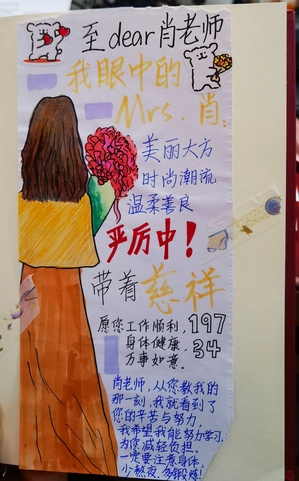 至dear肖老师
我眼中的
Mrs.肖:
美丽大方
时尚潮流
温柔善良
严厉中!
带着慈祥
愿您工作顺利,
身体健康,
万事如意。
197
34
肖老师,从您教我的
那一刻,我就看到了
您的辛苦与努力,
我希望我能努力学习,
为您减轻负担。
一定要注意身体
少熬夜,多锻炼!